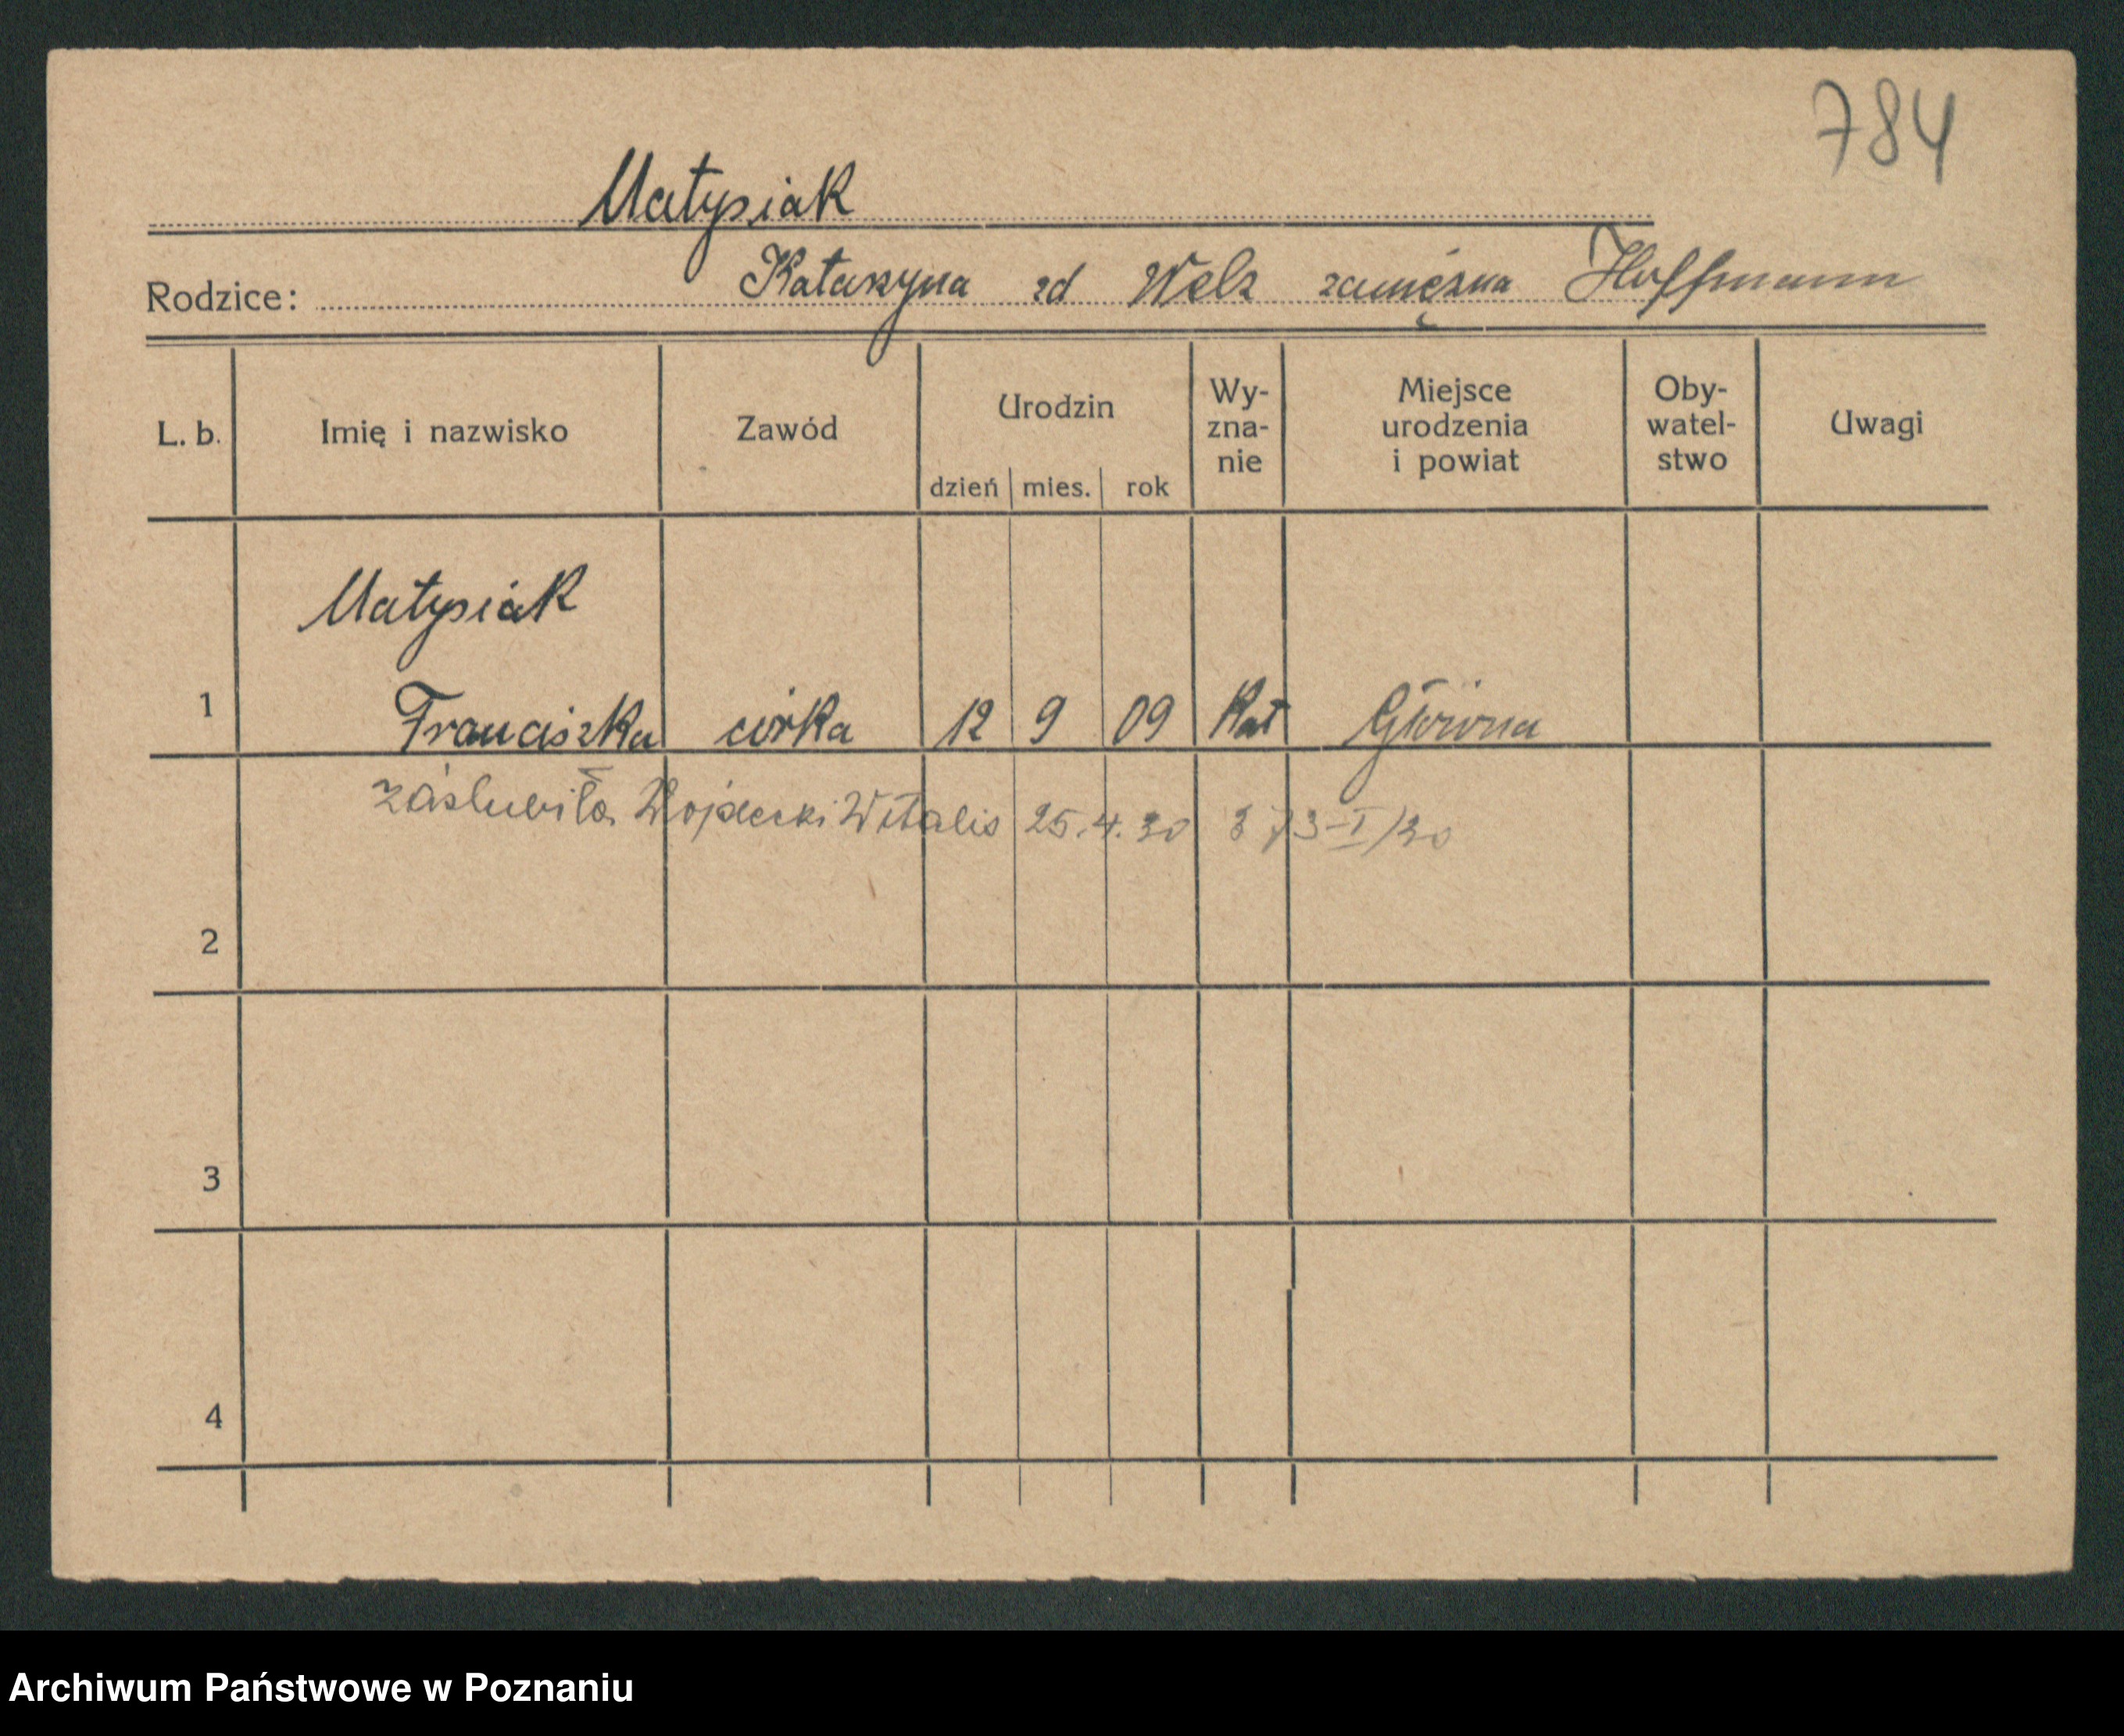 784
Matysiak
Rodzice: Katarzyna zd Welz zamężna Hoffmann
L. b. Imię i nazwisko Zawód Urodzin dzień mies. rok Wy-zna-nie Miejsce urodzenia i powiat Oby-watel-stwo Uwagi
Matysiak
1 Franciszka córka 12 9 09 Kat Główna
zaślubiła Wojdecki Witalis 25.4.30 373-I/30
2
3
4
Archiwum Państwowe w Poznaniu